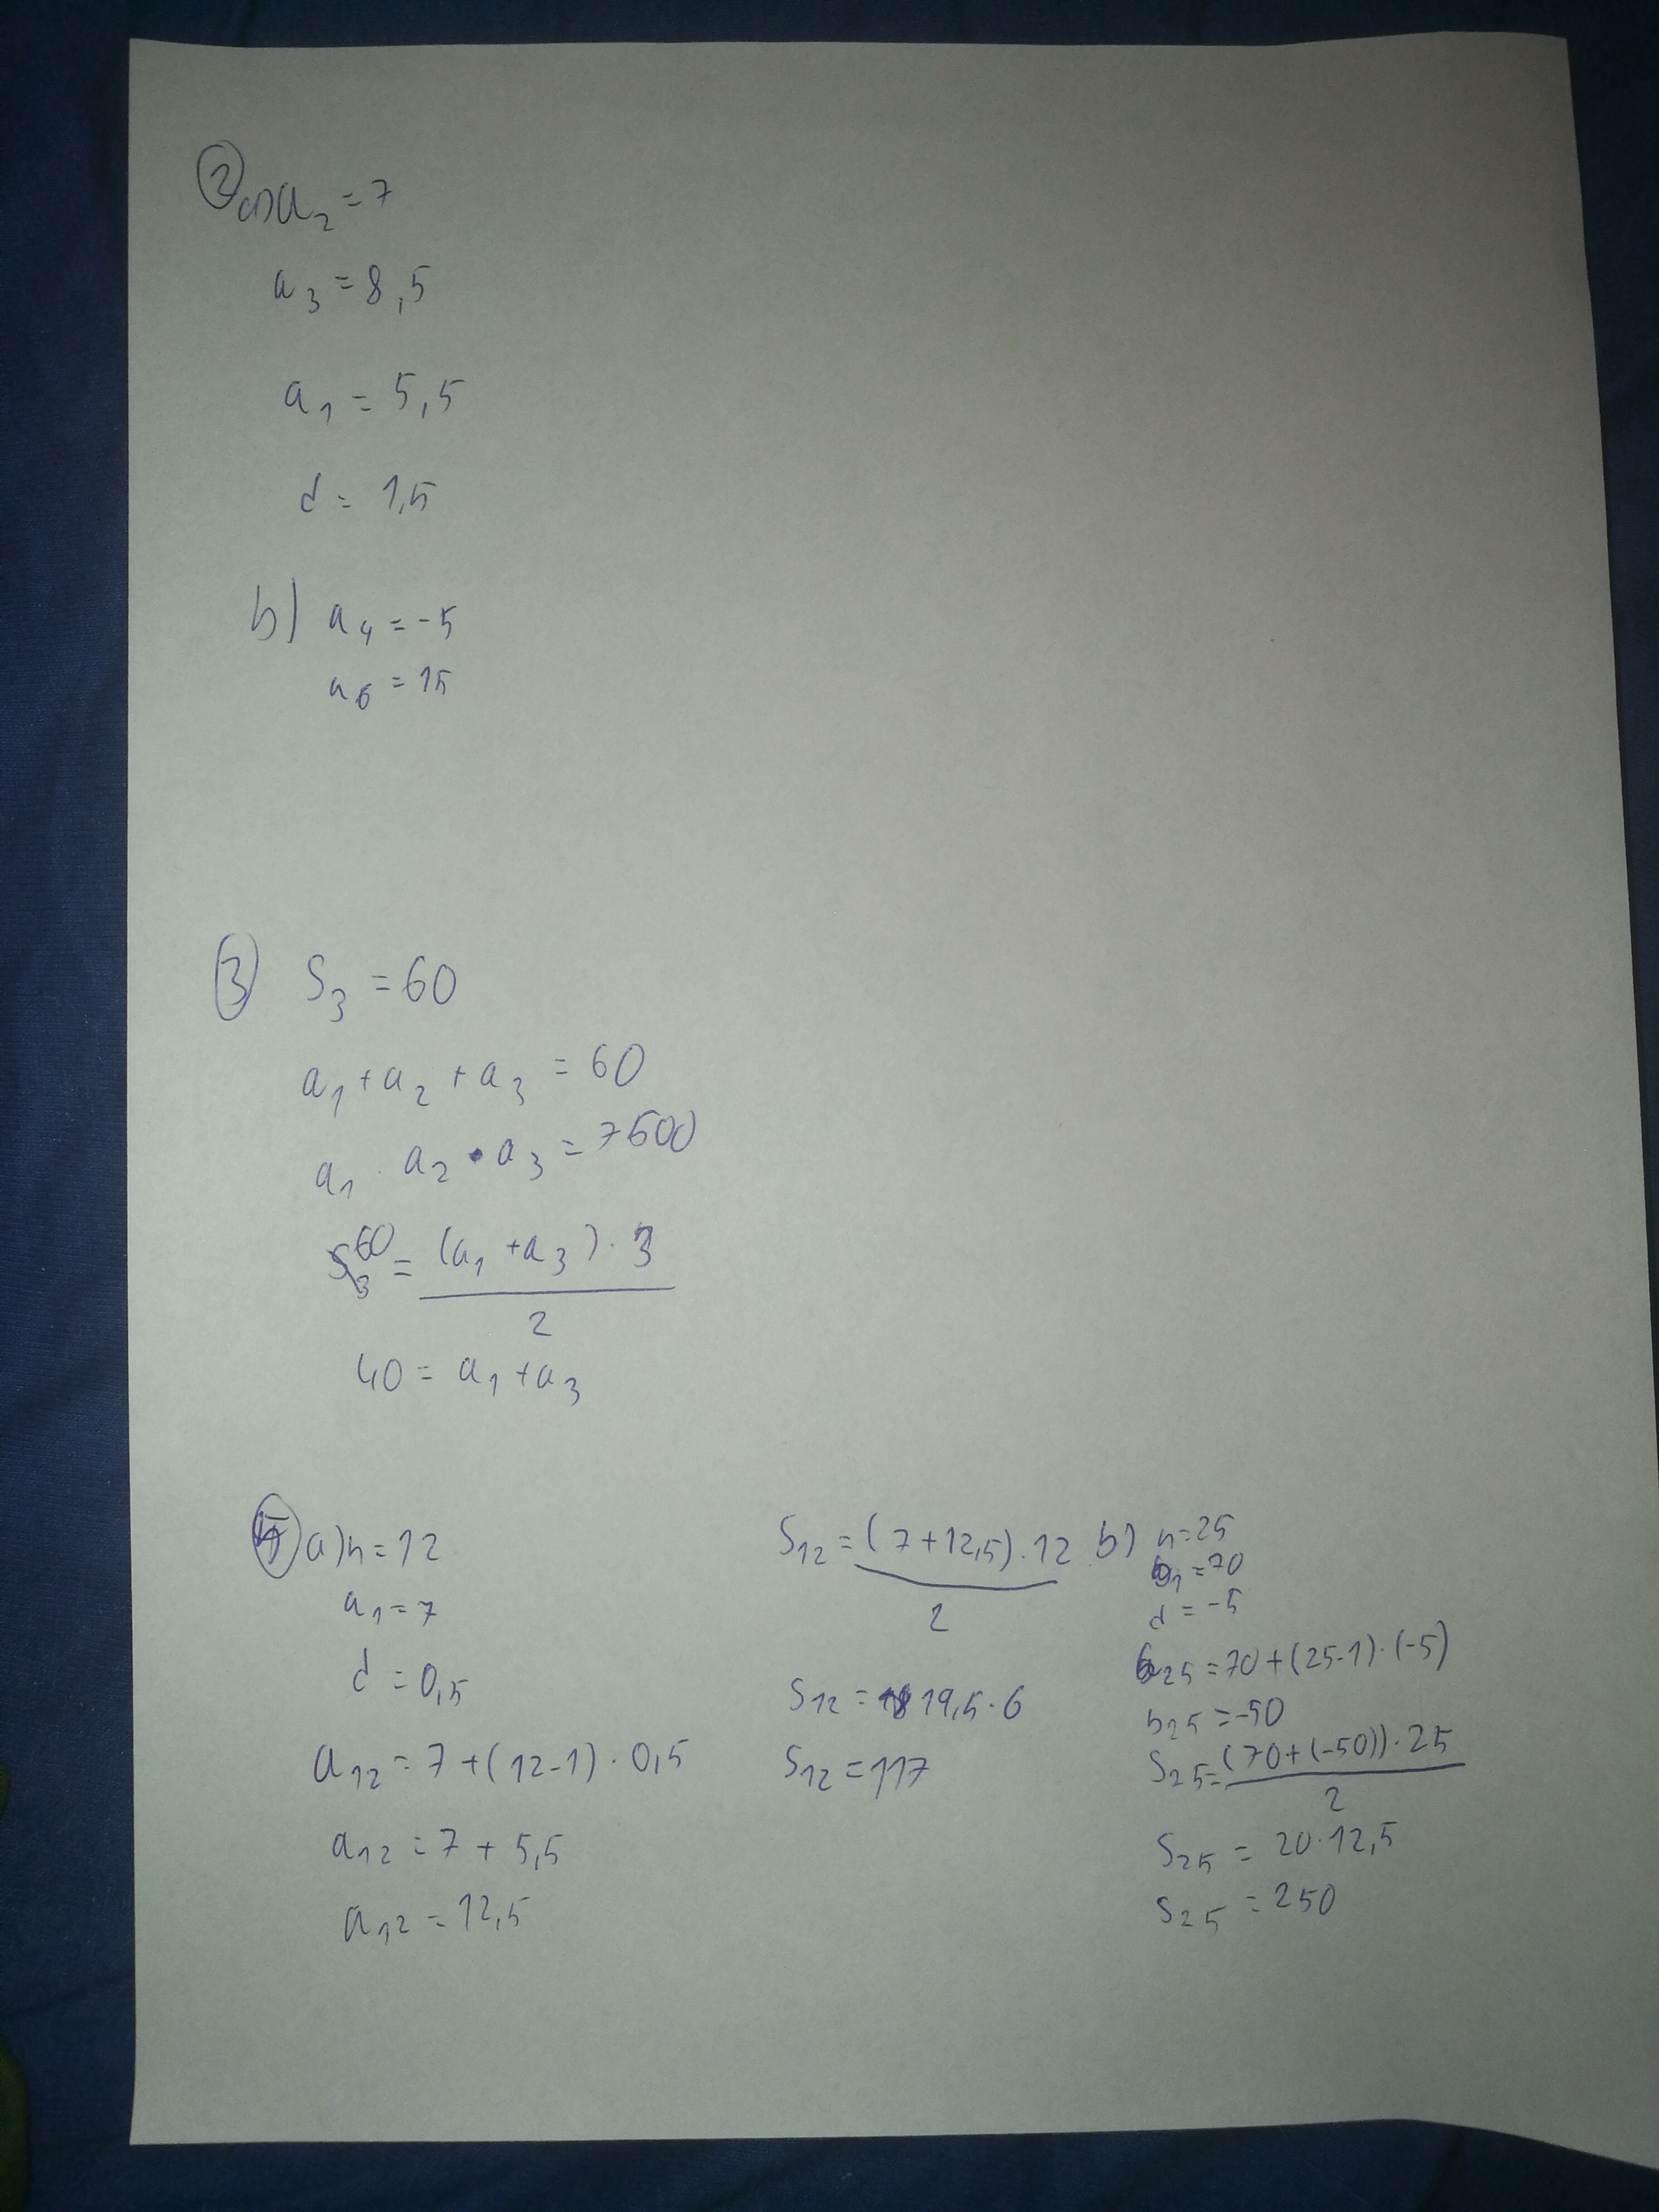 2
a) a₂ = 7
a₃ = 8,5
a₁ = 5,5
d = 1,5
b) a₄ = -5
a₆ = 15
3 S₃ = 60
a₁ + a₂ + a₃ = 60
a₁ · a₂ · a₃ = 7500
60 = (a₁ + a₃) · 3
2
40 = a₁ + a₃
a) n = 12
a₁ = 7
d = 0,5
a₁₂ = 7 + (12-1) · 0,5
a₁₂ = 7 + 5,5
a₁₂ = 12,5
S₁₂ = (7 + 12,5) · 12
2
S₁₂ = 19,5 · 6
S₁₂ = 117
b) n = 25
b₁ = 70
d = -5
b₂₅ = 70 + (25-1) · (-5)
b₂₅ = -50
S₂₅ = (70 + (-50)) · 25
2
S₂₅ = 20 · 12,5
S₂₅ = 250